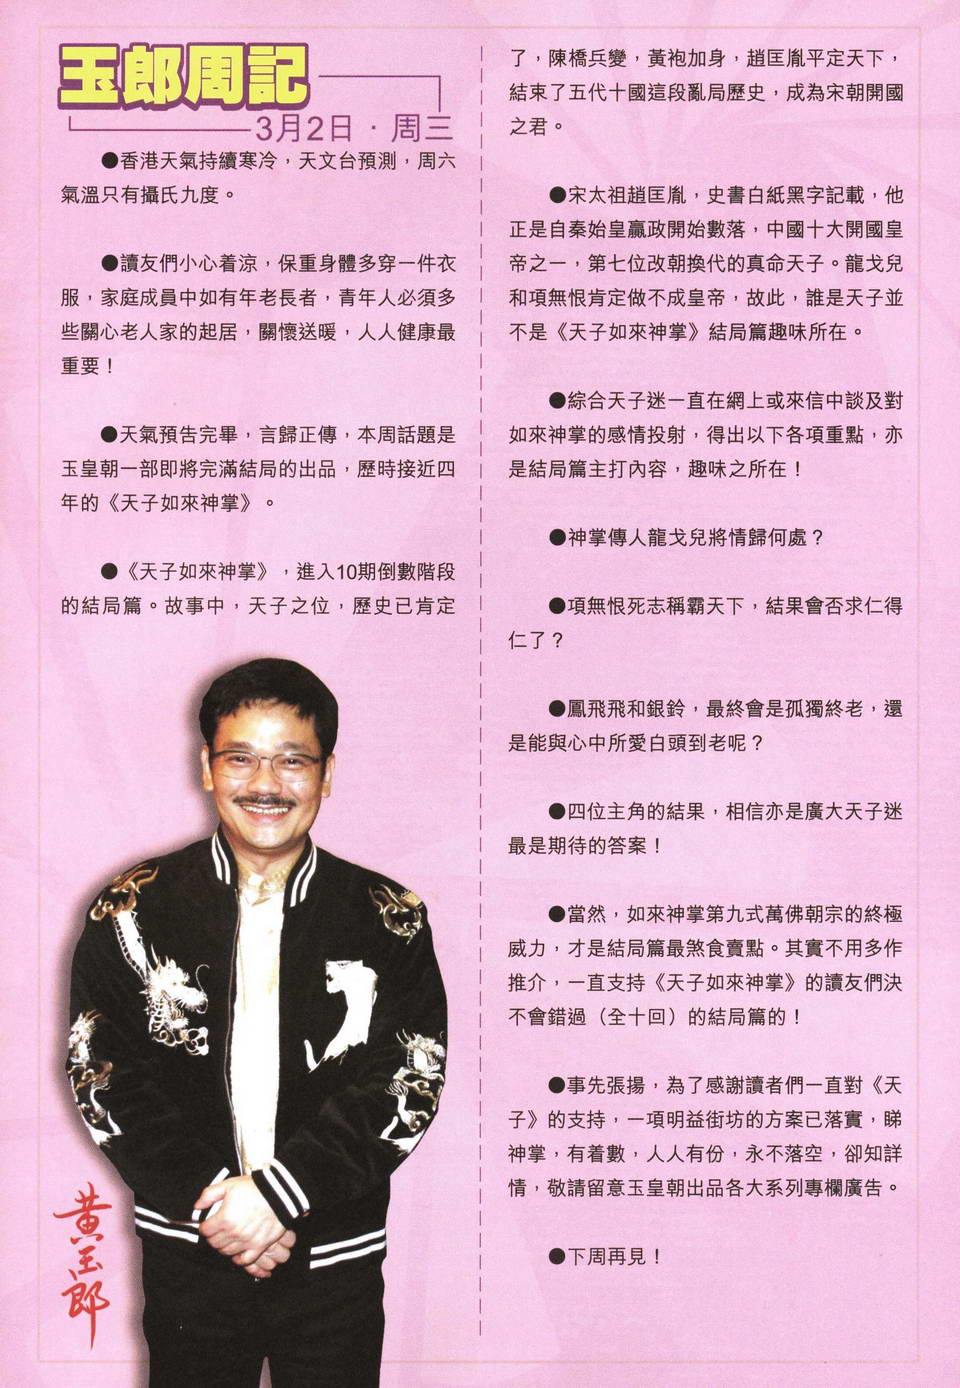 玉郎周記
3月2日·周三
●香港天氣持續寒冷，天文台預測，周六
氣溫只有攝氏九度。
●讀友們小心着涼，保重身體多穿一件衣
服，家庭成員中如有年老長者，青年人必須多
些關心老人家的起居，關懷送暖，人人健康最
重要！
●天氣預告完畢，言歸正傳，本周話題是
玉皇朝一部即將完滿結局的出品，歷時接近四
年的《天子如來神掌》。
●《天子如來神掌》，進入10期倒數階段
的結局篇。故事中，天子之位，歷史已肯定
了，陳橋兵變，黃袍加身，趙匡胤平定天下，
結束了五代十國這段亂局歷史，成為宋朝開國
之君。
●宋太祖趙匡胤，史書白紙黑字記載，他
正是自秦始皇贏政開始數落，中國十大開國皇
帝之一，第七位改朝換代的真命天子。龍戈兒
和項無恨肯定做不成皇帝，故此，誰是天子並
不是《天子如來神掌》結局篇趣味所在。
●綜合天子迷一直在網上或來信中談及對
如來神掌的感情投射，得出以下各項重點，亦
是結局篇主打內容，趣味之所在！
●神掌傳人龍戈兒將情歸何處？
●項無恨死志稱霸天下，結果會否求仁得
仁了？
●鳳飛飛和銀鈴，最終會是孤獨終老，還
是能與心中所愛白頭到老呢？
●四位主角的結果，相信亦是廣大天子迷
最是期待的答案！
●當然，如來神掌第九式萬佛朝宗的終極
威力，才是結局篇最煞食賣點。其實不用多作
推介，一直支持《天子如來神掌》的讀友們決
不會錯過（全十回）的結局篇的！
●事先張揚，為了感謝讀者們一直對《天
子》的支持，一項明益街坊的方案已落實，睇
神掌，有着數，人人有份，永不落空，卻知詳
情，敬請留意玉皇朝出品各大系列專欄廣告。
●下周再見！
黃玉郎